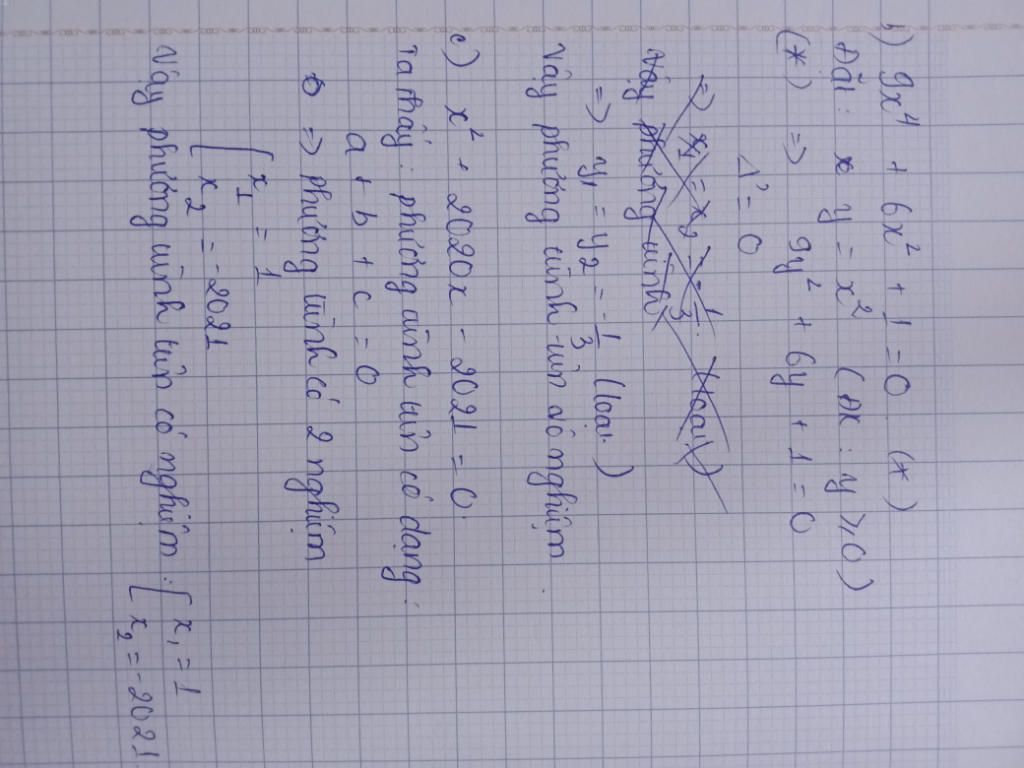 b) 9x⁴ + 6x² + 1 = 0 (*)
Đặt: x y = x² (ĐK: y ≥ 0)
(*) => 9y² + 6y + 1 = 0
Δ' = 0
=> x₁ = x₂ = -1/3 (loại)
Vậy phương trình
=> y₁ = y₂ = -1/3 (loại)
Vậy phương trình trên vô nghiệm.
c) x² + 2020x - 2021 = 0.
Ta thấy: phương trình trên có dạng:
a + b + c = 0
=> phương trình có 2 nghiệm
[ x₁ = 1
x₂ = -2021
Vậy phương trình trên có nghiệm: [ x₁ = 1
x₂ = -2021